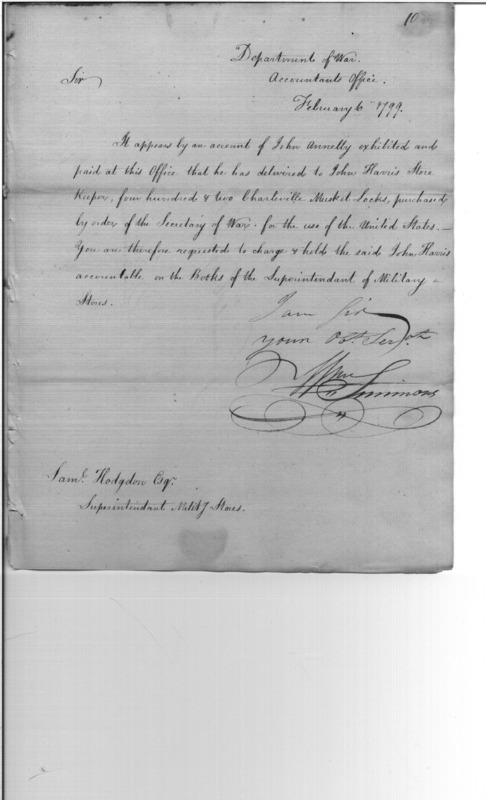 10
Department of War.
Accountants Office.
February 6th 1799.
Sir
It appears by an account of John Annelly exhibited and
paid at this Office that he has delivered to John Harris Store
Keeper, four hundred & two Charleville Musket Locks, purchased
by order of the Secretary of War. for the use of the United States._
You are therefore requested to charge & hold the said John Harris
accountable on the Books of the Superintendant of Military
Stores.
I am Sir
your Obt. Servt.
Wm Simmons
Saml. Hodgdon Esqr.
Superintendant Milit.y Stores.